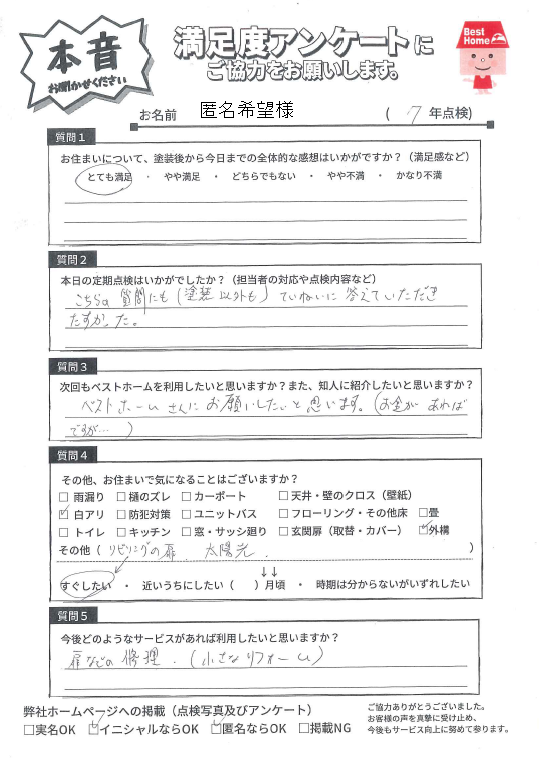 本音
お聞かせください
満足度アンケートに
ご協力をお願いします。
Best
Home
お名前 匿名希望様 ( 7 年点検)
質問1
お住まいについて、塗装後から今日までの全体的な感想はいかがですか？（満足感など）
とても満足 ・ やや満足 ・ どちらでもない ・ やや不満 ・ かなり不満
質問2
本日の定期点検はいかがでしたか？（担当者の対応や点検内容など）
こちらの質問にも(塗装以外も)ていねいに答えていただき
たすかった。
質問3
次回もベストホームを利用したいと思いますか？また、知人に紹介したいと思いますか？
ベストホームさんにお願いしたいと思います。(お金があれば
ですが… )
質問4
その他、お住まいで気になることはございますか？
□ 雨漏り □ 樋のズレ □ カーポート □ 天井・壁のクロス（壁紙）
☑ 白アリ □ 防犯対策 □ ユニットバス □ フローリング・その他床 □ 畳
□ トイレ □ キッチン □ 窓・サッシ廻り □ 玄関扉（取替・カバー） ☑ 外構
その他（ リビリングの扉. 太陽光. ）
↓↓
すぐしたい ・ 近いうちにしたい（ ）月頃 ・ 時期は分からないがいずれしたい
質問5
今後どのようなサービスがあれば利用したいと思いますか？
扉などの修理.(小さなリフォーム)
弊社ホームページへの掲載（点検写真及びアンケート）
□実名OK ☑イニシャルならOK ☑匿名ならOK □掲載NG
ご協力ありがとうございました。
お客様の声を真摯に受け止め、
今後もサービス向上に努めて参ります。